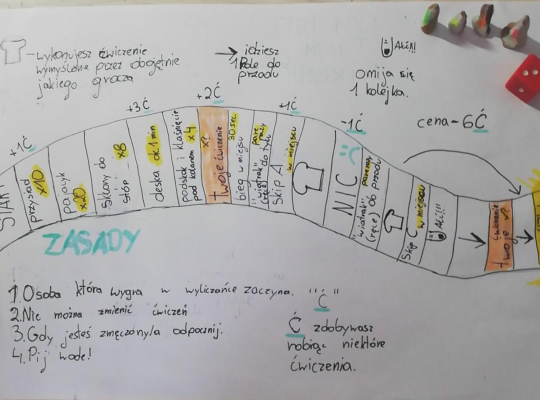 – wykonujesz ćwiczenie
wymyślone przez dbojętnie
jakiego gracza
→ idziesz
1 Pole do
przodu
Ała!!!
omija się
1 kolejka.
cena-6Ć
+1Ć
+3Ć
+2Ć
+1Ć
-1Ć
START
przysiad x10
pajacyk x20
Skłony do
stóp x8
deska ok 1 min
podskok i klaśnięcie
pod kolanem x4
twoje ćwiczenie x?
bieg w miejscu 30 sec
"wiatrak"
Skip A w miejscu
NIC
"wiatrak"
(ręce) do przodu
Skip C w miejscu
Ała!!!
→
ćwiczenie
twoje x?
→
ZASADY
1. Osoba która wygra w wyliczance zaczyna.
2. Nie można zmienić ćwiczeń
3. Gdy jesteś zmęczony/a odpocznij.
4. Pij wodę!
"Ć"
Ć zdobywasz
robiąc niektóre
ćwiczenia.